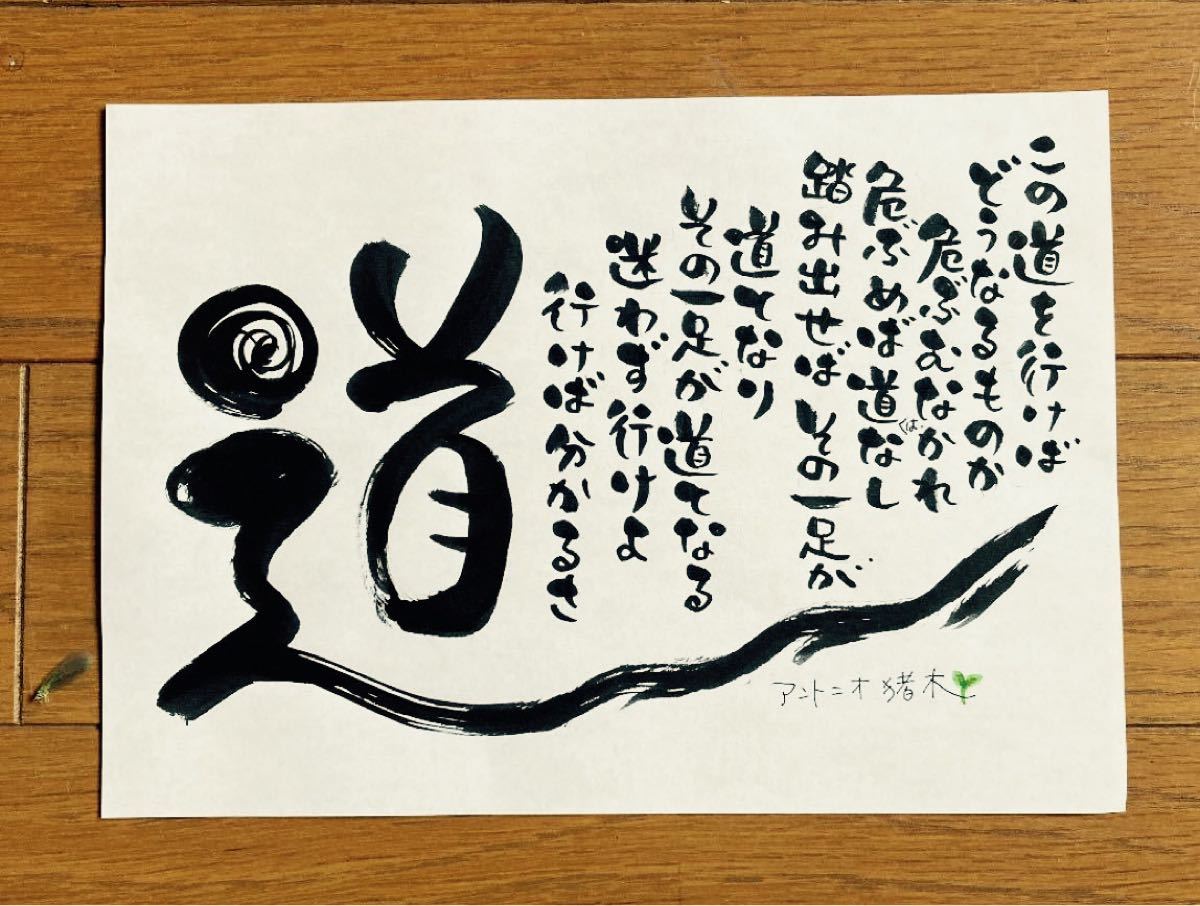 この道を行けば
どうなるものか
危ぶむなかれ
危ぶめば道はなし
踏み出せば その一足が
道となり
その一足が道となる
迷わず行けよ
行けば分かるさ
道
アントニオ猪木